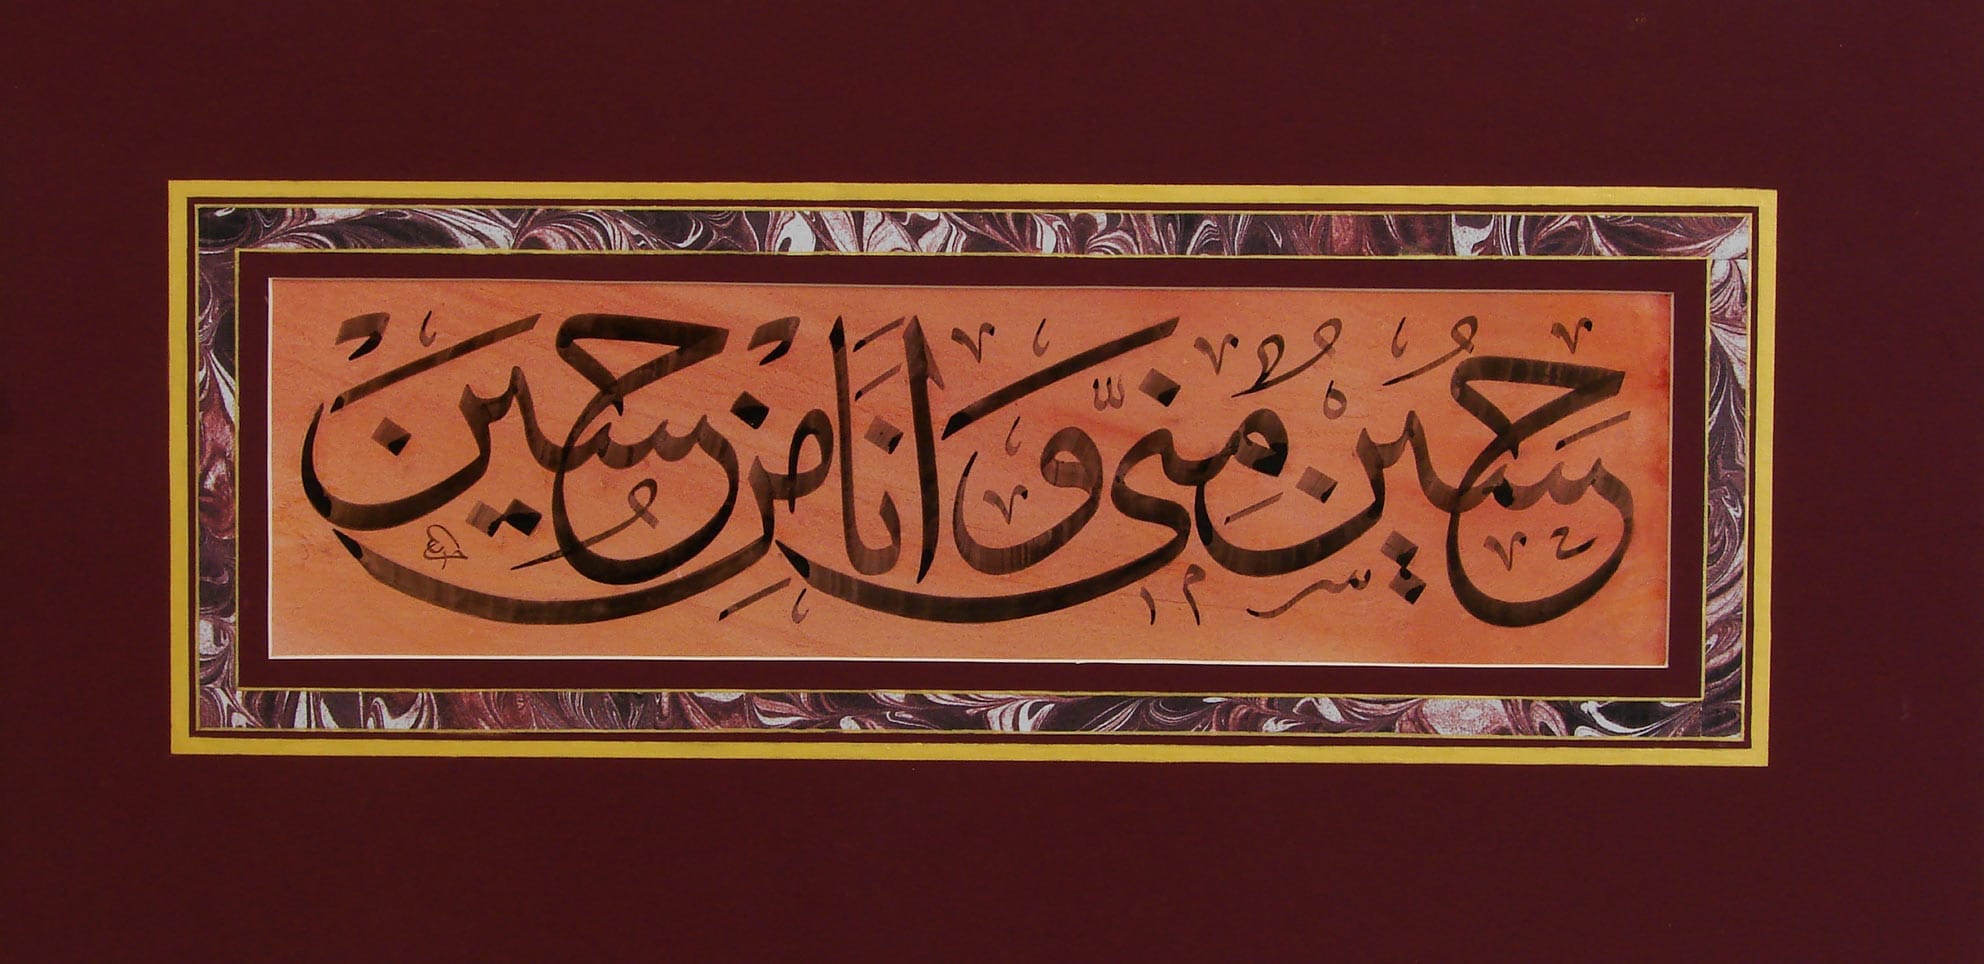 حُسَين مِنِّي وَاَنَا مِن حُسَين